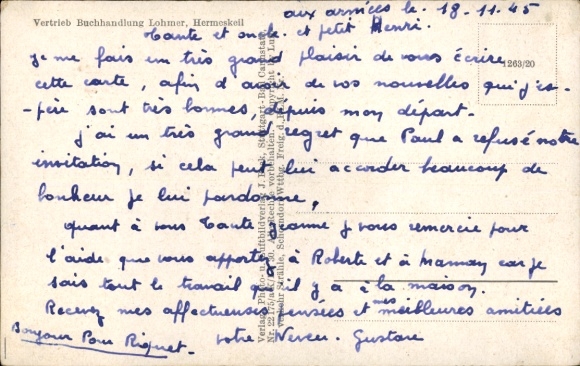 Vertrieb Buchhandlung Lohmer, Hermeskeil
aux armées le. 18-11-45
Tante et oncle. et petit Henri.
je me fais un très grand plaisir de vous écrire
1263/20
cette carte, afin d'avoir de vos nouvelles qui j'es-
-père sont très bonnes, depuis mon départ-
j'ai un très grand regret que Paul a refusé notre
invitation, si cela peut lui accorder beaucoup de
bonheur je lui pardonne,
quant à vous Tante Jeanne je vous remercie pour
l'aide que vous apportez à Roberte et à maman car je
sais tout le travail qu'il y à à la maison.
Recevez mes affectueuses pensées et mes meilleures amitiées
Bonjour Pour Riquet-
votre Neveu. Gustave